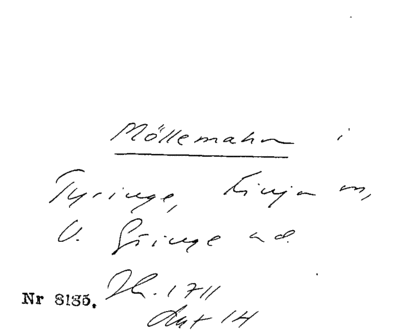 Möllemahn i
Tyringe, Finja sn,
V. Göinge hd.
Nr 3135.
1711
14